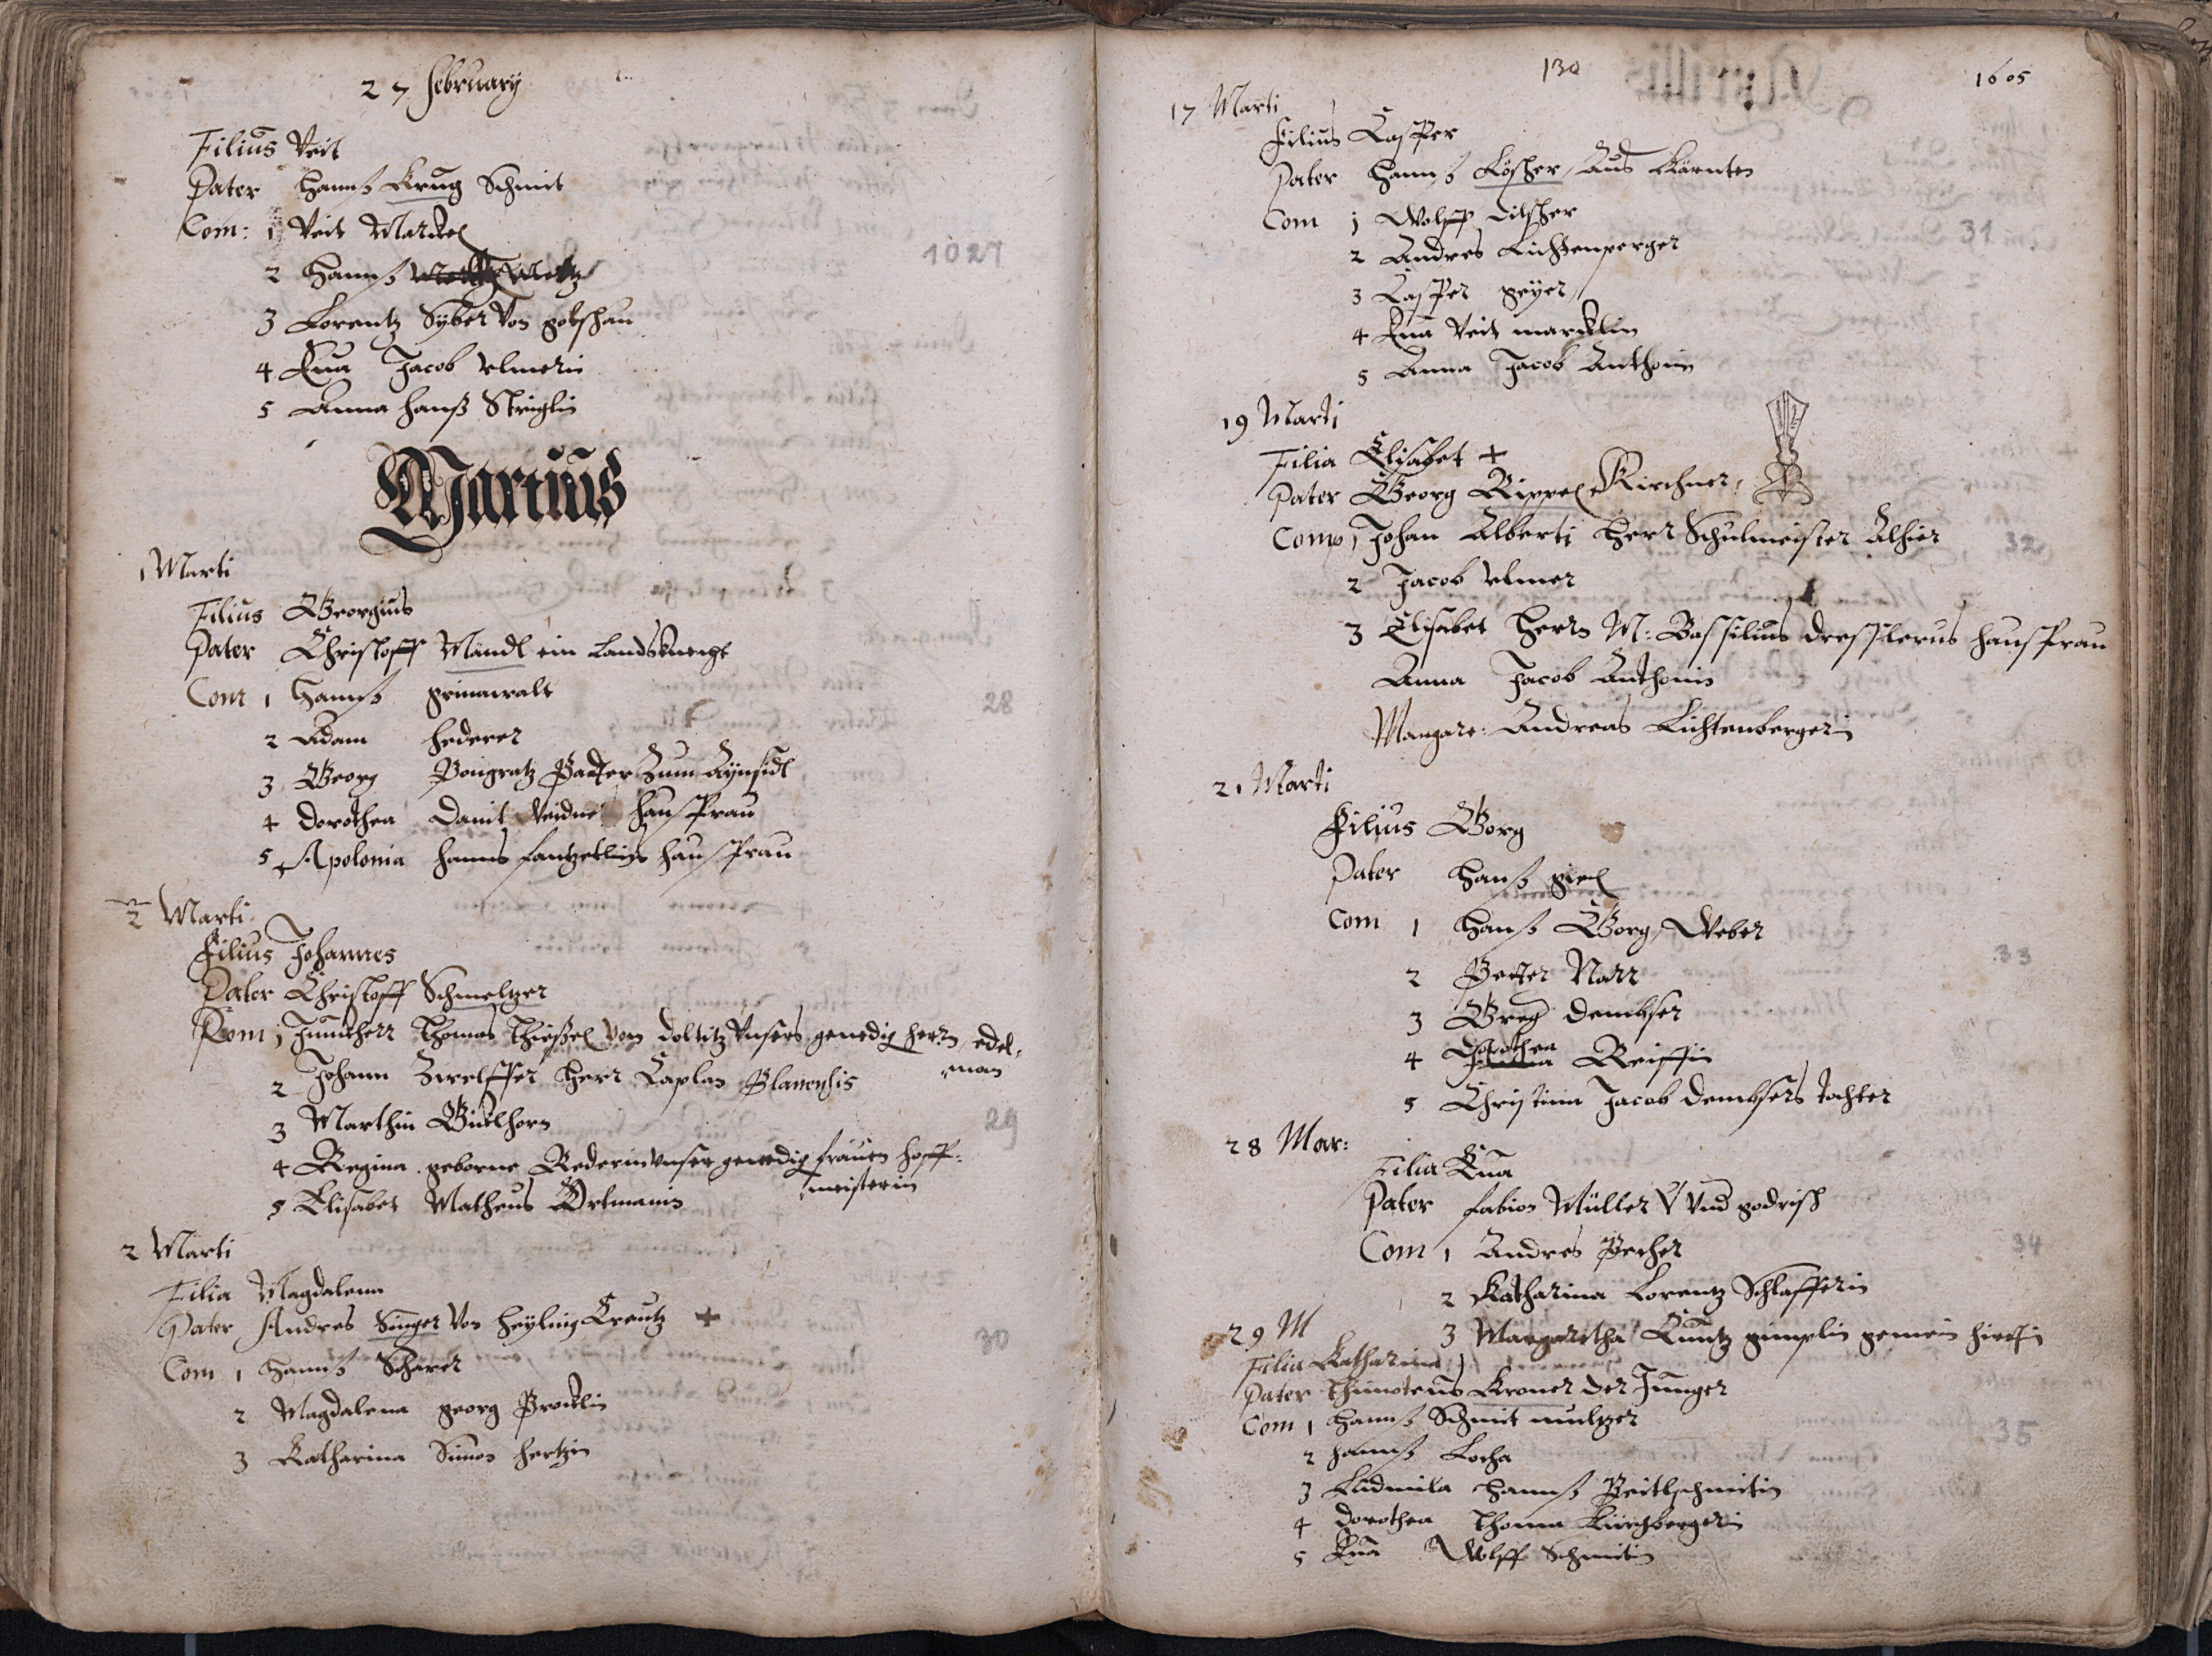 27 february
Filius Veit
Pater Hannß Krug Schmit
Com: 1 Veit Marckel
2 Hannß Mertz
3 Lorentz Syber von gotschau
4 Eua Jacob Vlmerin
5 Anna Hanß Striglin
1027
Martius
1 Marti
Filius Georgius
Pater Christoff Mändl ein Landsknecht
Com 1 Hannß grünwalt
28
2 Adam hederer
3 Georg Pongratz Pader Zum
4 Dorothea Dauit Weidner haußfrau
5 Apolonia Hanns haußfrau
2 Marti
Filius Johannes
Pater Christoff Schmelzer
Com 1 Junckherr Thomas Thießel von doltitz Vnsers genedig herrn edel-
man
2 Johann Zwelffer Herr Caplan Planensis
3 Marthin Güttlhorn
29
4 Regina geborne Rederin Vnser genedig frauen hoff-
meisterin
5 Elisabet Matheus Ortmanin
2 Marti
Filia Magdalena
Pater Andres Singer von heyling Creutz +
30
Com 1 Hannß Scharer
2 Magdalena georg Procklin
3 Katharina Simon hertzin
130
1605
17 Marti
Filius Casper
Pater Hannß Löscher, Aus Kärnten
Com 1 Wolff Dilscher
31
2 Andres Lichtenperger
3 Casper geyer
4 Eua Veit marcklin
5 Anna Jacob Anthonin
19 Marti
Filia Elisabet +
Pater Georg Rippel Kirchner
Comp 1 Johan Alberti Herr Schulmeister Alhier
32
2 Jacob Vlmer
3 Elisabet Herrn M: Bassilius dresslerus haußfrau
Anna Jacob Anthonin
Margare: Andreas Lichtenbergerin
21 Marti
Filius Georg
Pater Hanß giel
Com 1 Hanß Georg, Weber
33
2 Petter Narr
3 Greg Demkser
4 Dorothea Reissin
5 Christina Jacob Demksers tochter
28 Mar:
Filia Eua
Pater fabian Müller Vnd godrisch
Com 1 Andres Pecher
34
2 Katharina Lorentz Schlafferin
3 Margaretha Cuntz gimplin gemein hirtin
29 M
Filia Katharina
Pater Thimoteus Kroner der Junger
Com 1 Hannß Schmit mulzer
35
2 Hannß Locha
3 Ludmila Hannß Peitlschmitin
4 Dorothea Thoma Kürchbergerin
5 Eua Wolff Schmitin